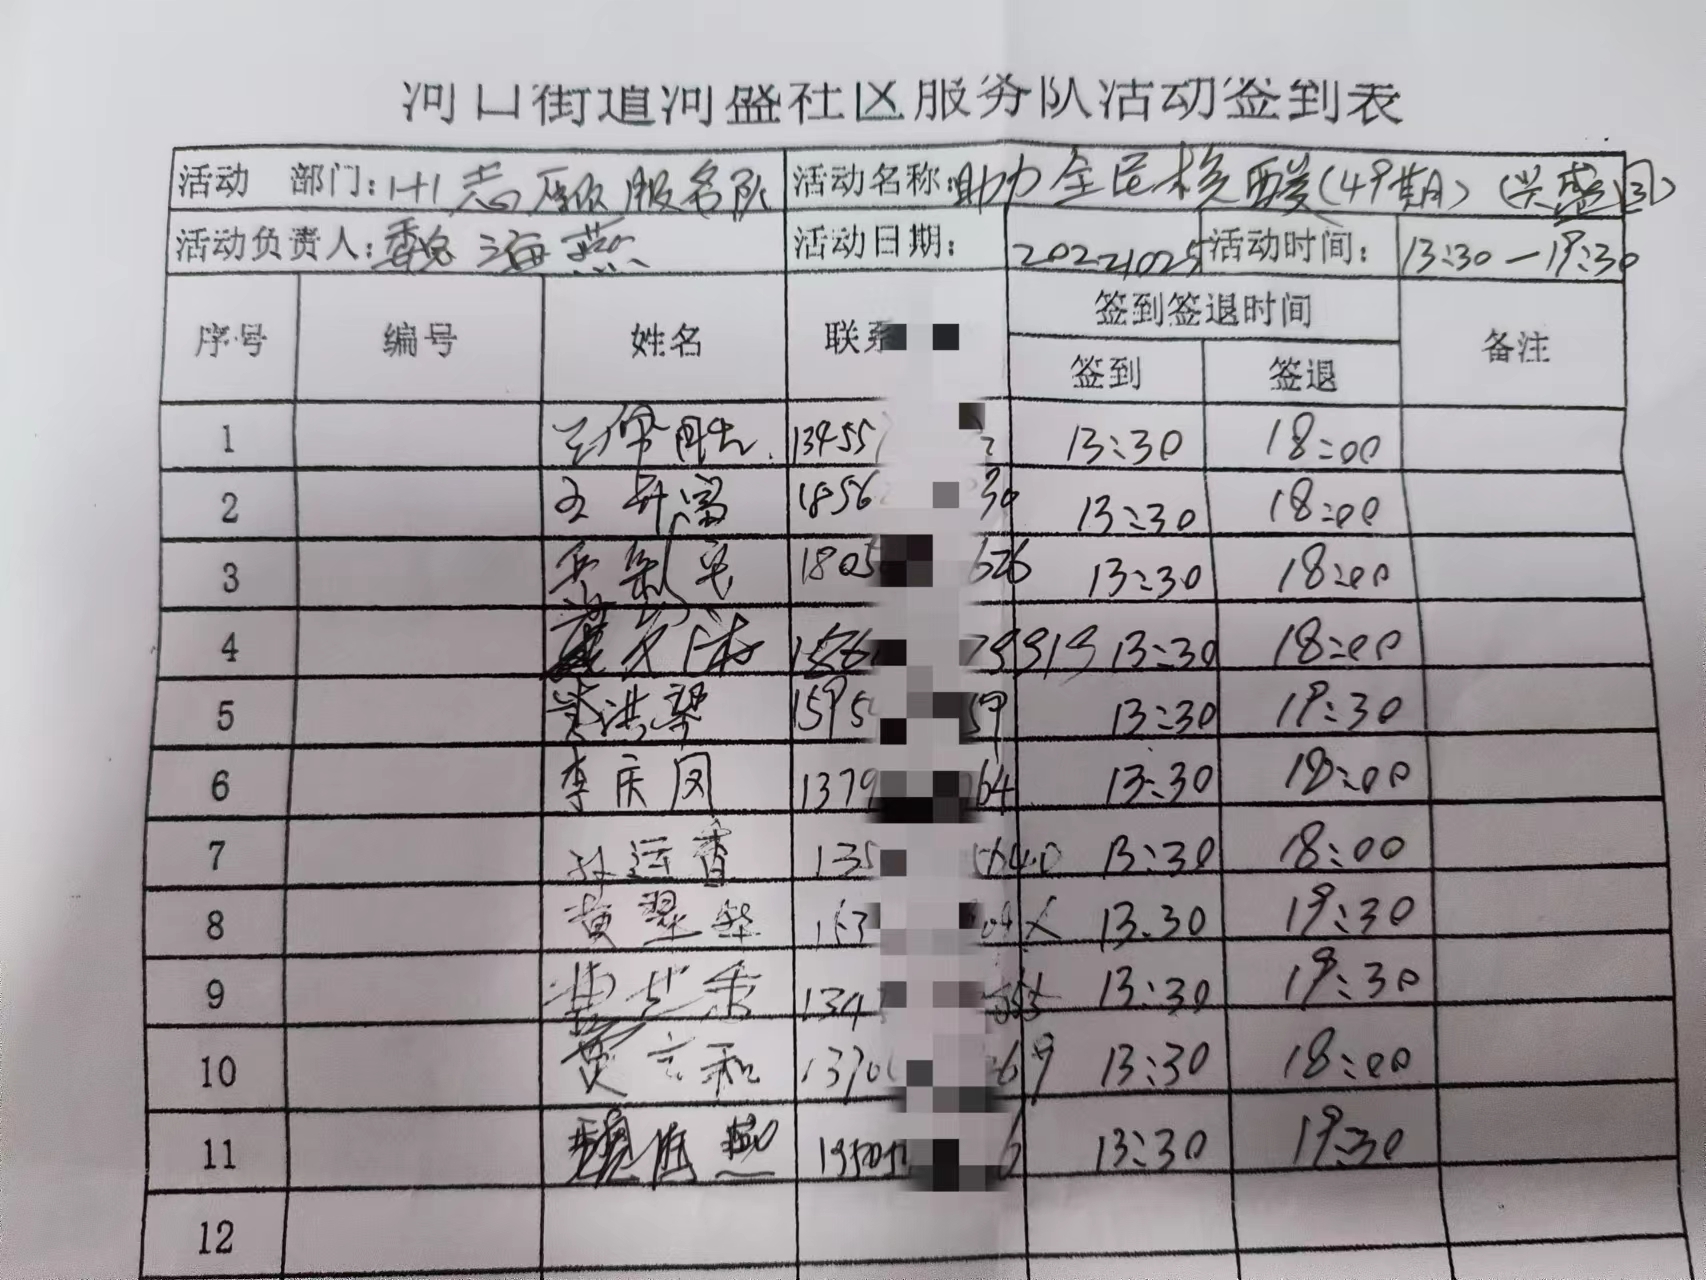 河口街道河盛社区服务队活动签到表
活动 部门：1+1志愿服务队 活动名称：助力全民核酸（49期）（兴盛园）
活动负责人：魏海燕 活动日期： 20221025 活动时间： 13:30—19:30
序号 编号 姓名 联系 签到签退时间 备注
签到 签退
1 13455 2 13:30 18:00
2 1856 30 13:30 18:00
3 1805 626 13:30 18:00
4 13:30 18:00
5 黄洪翠 1595 59 13:30 19:30
6 李庆凤 1379 64 13:30 18:00
7 孙运香 135 13:30 18:00
8 黄翠华 13:30 19:30
9 134 13:30 19:30
10 1370 69 13:30 18:00
11 魏海燕 6 13:30 19:30
12